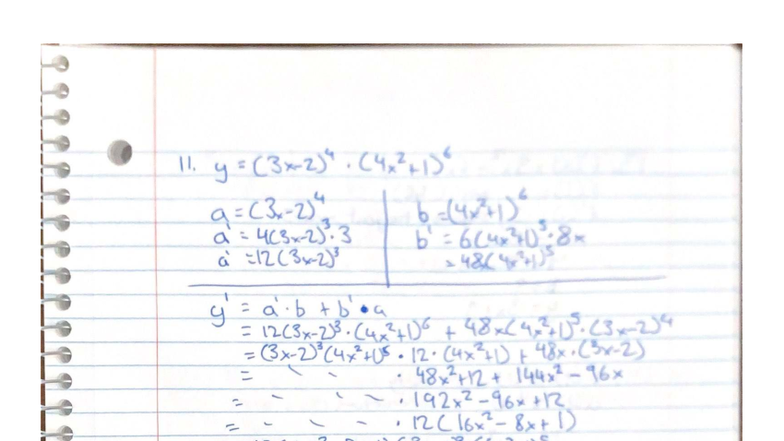 11. y = (3x-2)⁴ · (4x²+1)⁶
a = (3x-2)⁴ b = (4x²+1)⁶
a' = 4(3x-2)³·3 b' = 6(4x²+1)⁵·8x
a' = 12(3x-2)³ = 48(4x²+1)⁵
y' = a'·b + b'·a
= 12(3x-2)³·(4x²+1)⁶ + 48x(4x²+1)⁵·(3x-2)⁴
= (3x-2)³(4x²+1)⁵ · 12·(4x²+1) + 48x·(3x-2)
= ` ` ` · 48x²+12 + 144x² - 96x
= - ` ` ` · 192x² - 96x + 12
= - ` - ` · 12(16x² - 8x + 1)